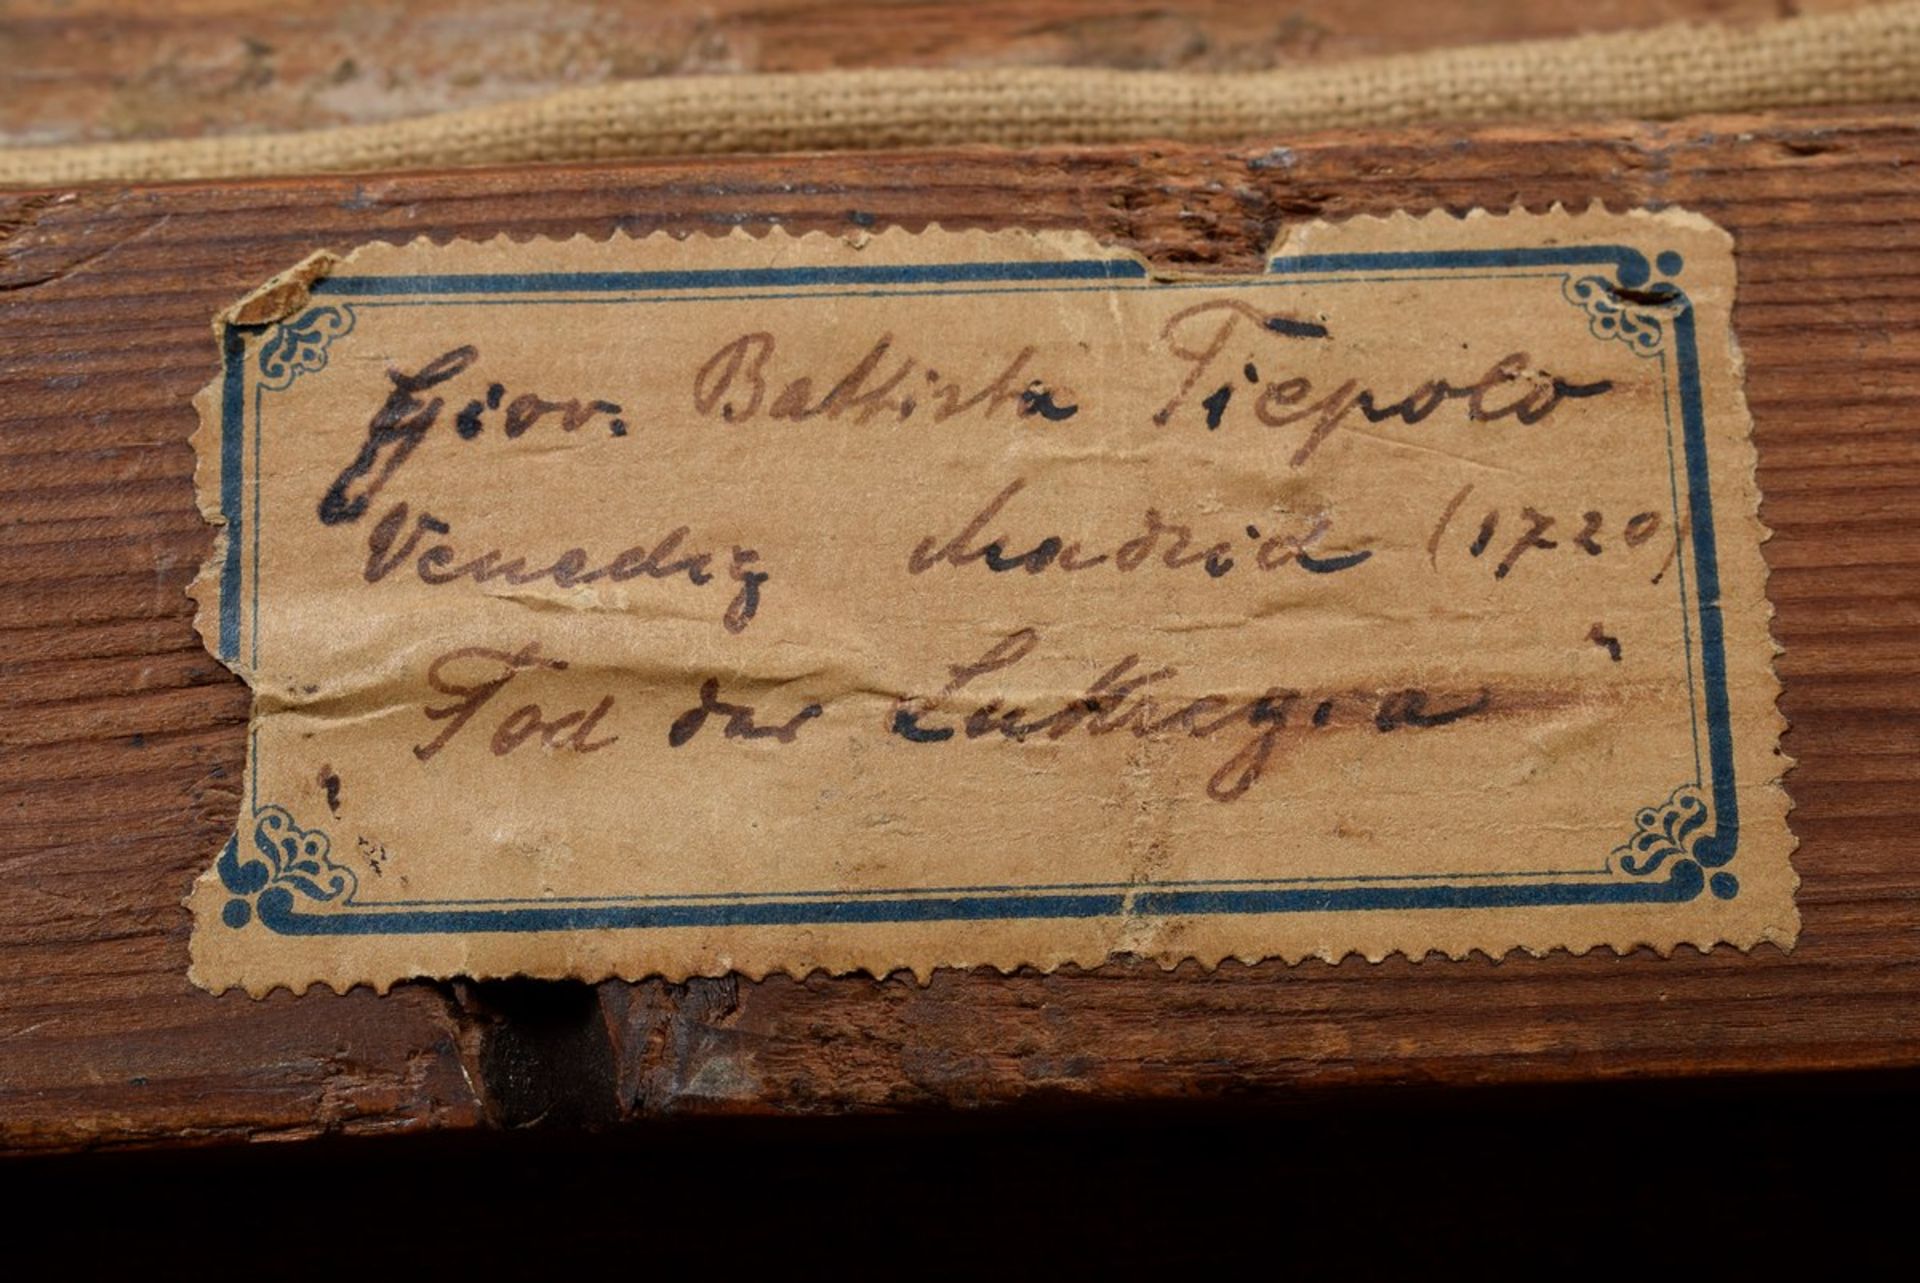 Giov. Battista Tiepolo
Venedig Madrid (1720)
„Tod der Lukrezia“